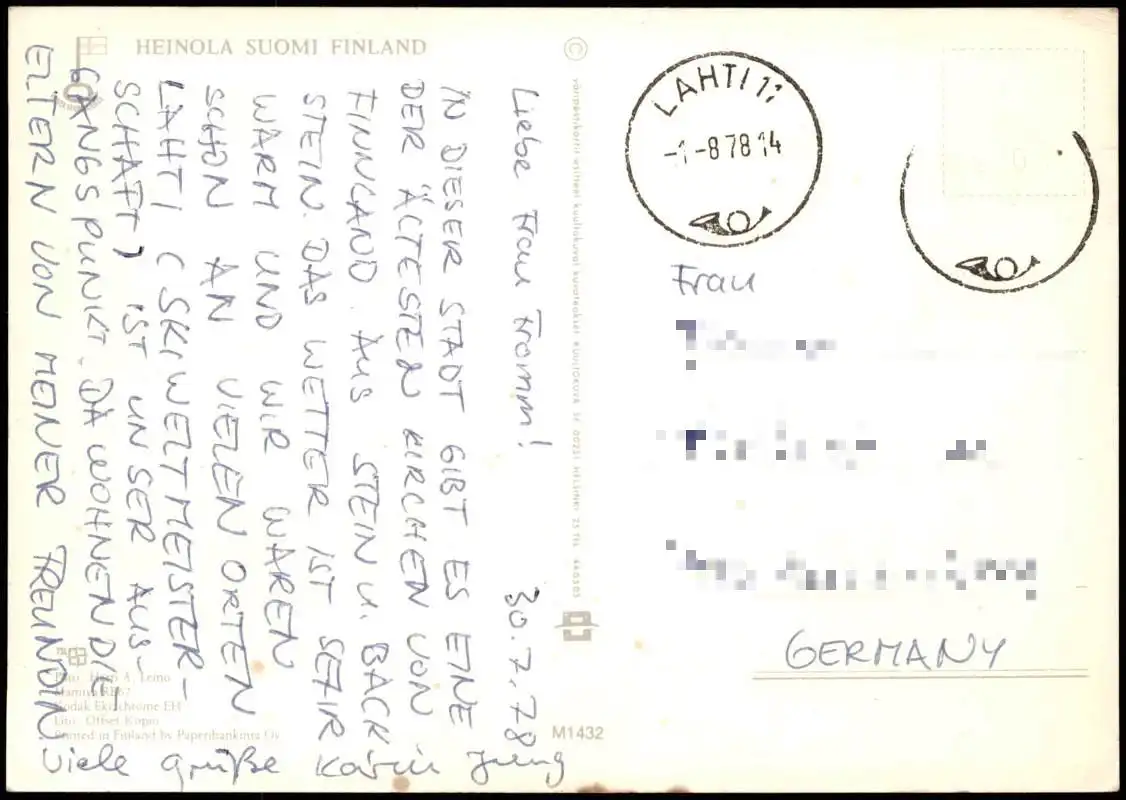 HEINOLA SUOMI FINLAND
©
Liebe Frau Fromm! 30.7.78
IN DIESER STADT GIBT ES EINE
DER ÄLTESTEN KIRCHEN VON
FINNLAND. AUS STEIN U. BACK
STEIN. DAS WETTER IST SEHR
WARM UND WIR WAREN
SCHON AN VIELEN ORTEN
LAHTI (SKIWELTMEISTER-
SCHAFT) IST UNSER AUS-
GANGSPUNKT. DA WOHNEN DIE
ELTERN VON MEINER FREUNDIN
Viele grüße Karin Jung
Lito: Offset-Kopio
Printed in Finland by Paperihankinta Oy
M1432
LAHTI 11
-1-8 78 14
Frau
GERMANY